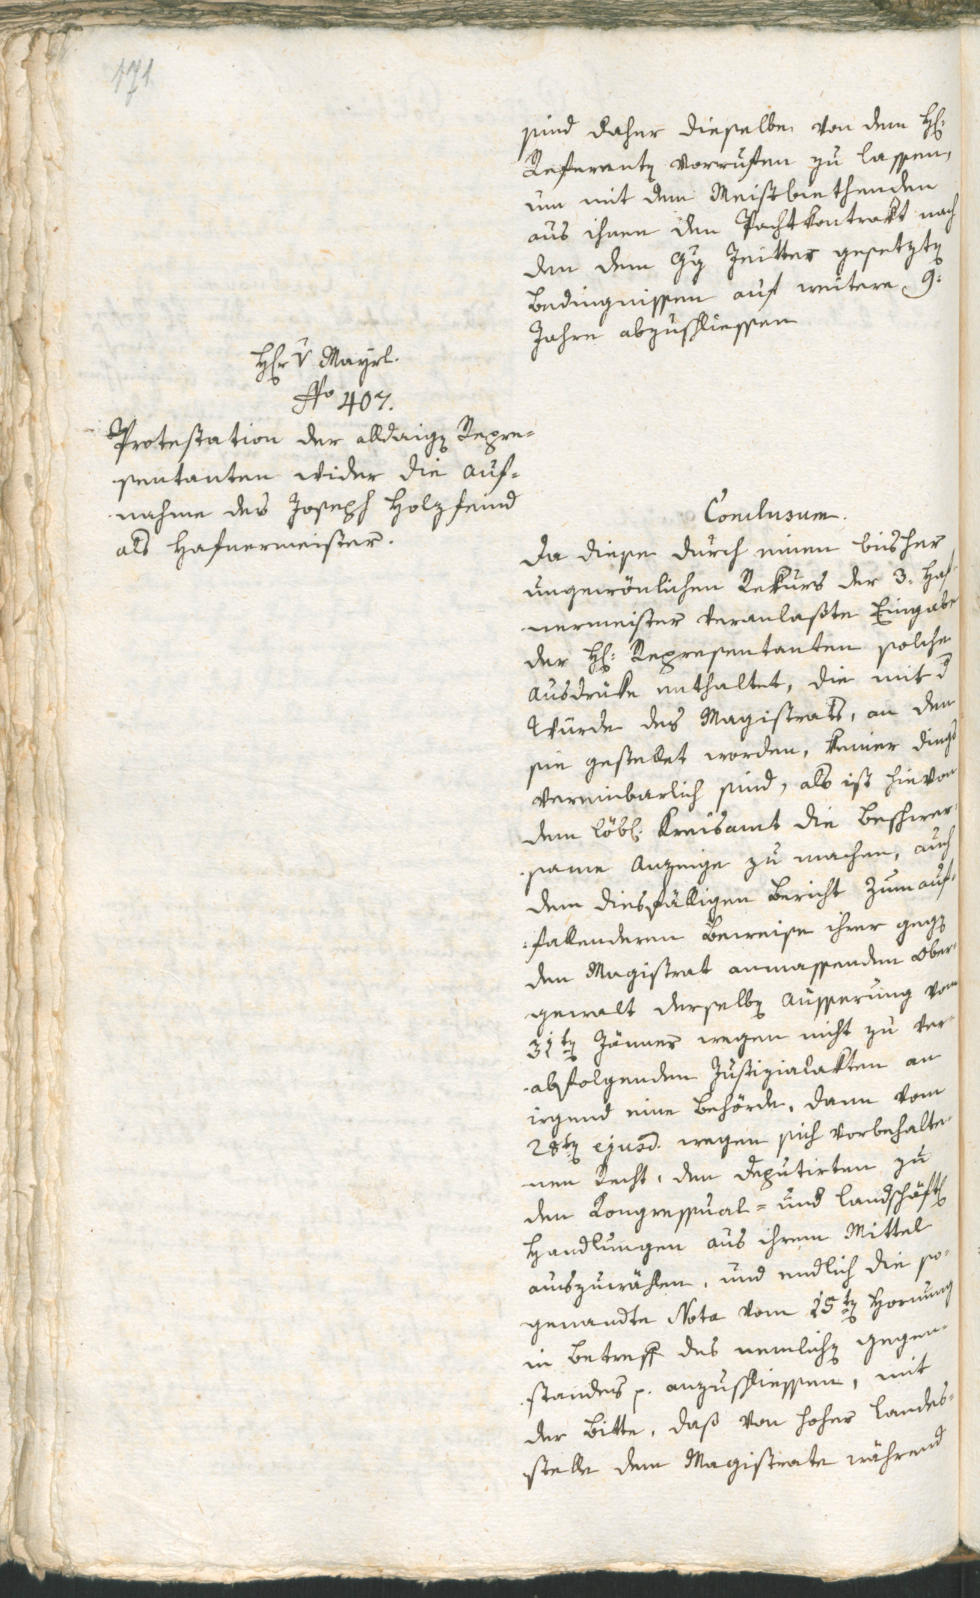 171
sind daher dieselbe von dem H:
Referenten vorrufen zu lassen,
um mit dem Meistbiethenden
aus ihnen den Pachtkontrakt nach
den dem Zeitter gesetzten
Bedingnissen auf weitere 9:
Jahre abzuschliessen
Hr v Mayrl.
No 407.
Protestation der alldaigen Repre=
sentanten wider die Auf=
nahme des Joseph Holzfeind
als Hafnermeister.
Conclusum.
Da diese durch einen bisher
ungewönlichen Rekurs der 3. Haf=
nermeister veranlaßte Eingabe
der H: Representanten solche
Ausdrüke enthaltet, die mit d
Würde des Magistrats, an den
sie gestellet worden, keiner dings
vereinbarlich sind, als ist hievon
dem löbl. Kreisamt die Beschwer=
same Anzeige zu machen, auch
dem diesfälligen Bericht zum auf=
fallenderen Beweise ihrer gegen
den Magistrat anmassenden Ober=
gewalt derselben Äusserung vom
31ten Jänner wegen nicht zu ver=
abfolgenden Justizialakten an
irgend eine Behörde, dann vom
28ten ejusd. wegen sich vorbehalte=
nen Recht, den Deputirten zu
den Kongressual= und landschäftl
Handlungen aus ihrem Mittel
auszuwählen, und endlich die so=
genandte Nota vom 15ten Hornung
in Betreff des nemlichen Gegen=
standes p. anzuschliessen, mit
der Bitte, daß von hoher Landes=
stelle dem Magistrate während